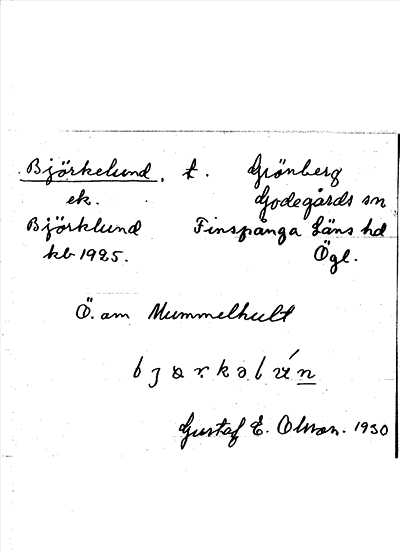 Björkelund, t. Grönberg
ek. Godegårds sn
Björklund Finspånga Läns hd
kb 1925. Ögl.
Ö. am Mummelhult
Gustaf E. Olsson. 1930